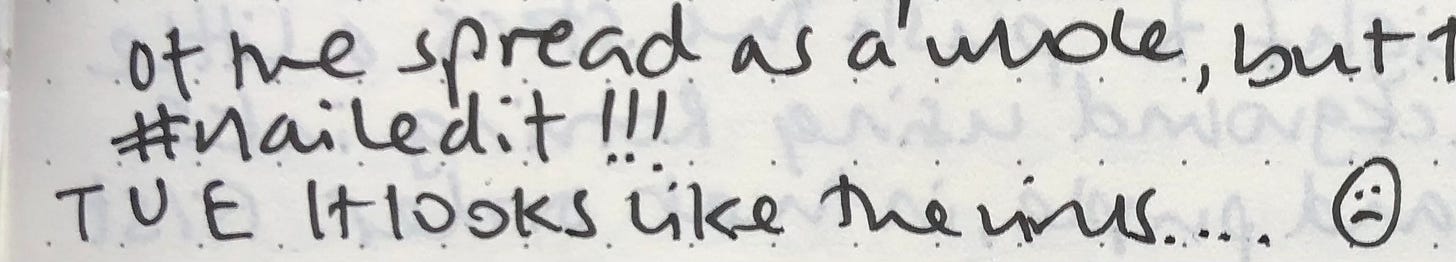 of the spread as a whole, but
#nailedit!!!
TUE It looks like the virus..... ☹